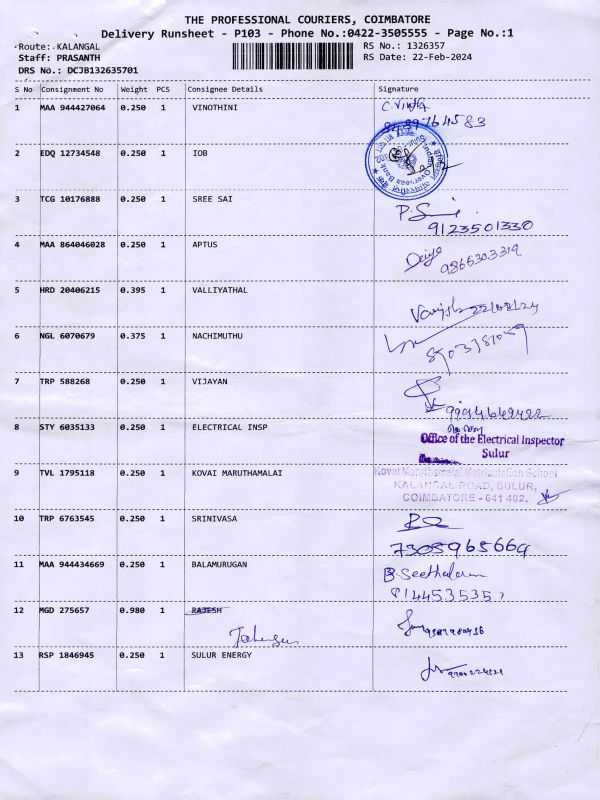 THE PROFESSIONAL COURIERS, COIMBATORE
Delivery Runsheet - P103 - Phone No.:0422-3505555 - Page No.:1
Route: KALANGAL
RS No.: 1326357
Staff: PRASANTH
RS Date: 22-Feb-2024
DRS No.: DCJB132635701
S No Consignment No Weight PCS Consignee Details Signature
1 MAA 944427064 0.250 1 VINOTHINI
2 EDQ 12734548 0.250 1 IOB
3 TCG 10176888 0.250 1 SREE SAI
9123501330
4 MAA 864046028 0.250 1 APTUS
5 HRD 20406215 0.395 1 VALLIYATHAL
6 NGL 6070679 0.375 1 NACHIMUTHU
7 TRP 588268 0.250 1 VIJAYAN
8 STY 6035133 0.250 1 ELECTRICAL INSP
Office of the Electrical Inspector
Sulur
9 TVL 1795118 0.250 1 KOVAI MARUTHAMALAI
Kovai Maruthamalai Matriculation School
KALANGAL ROAD, SULUR,
COIMBATORE - 641 402.
10 TRP 6763545 0.250 1 SRINIVASA
7305965664
11 MAA 944434669 0.250 1 BALAMURUGAN
12 MGD 275657 0.980 1 RAJESH
13 RSP 1846945 0.250 1 SULUR ENERGY